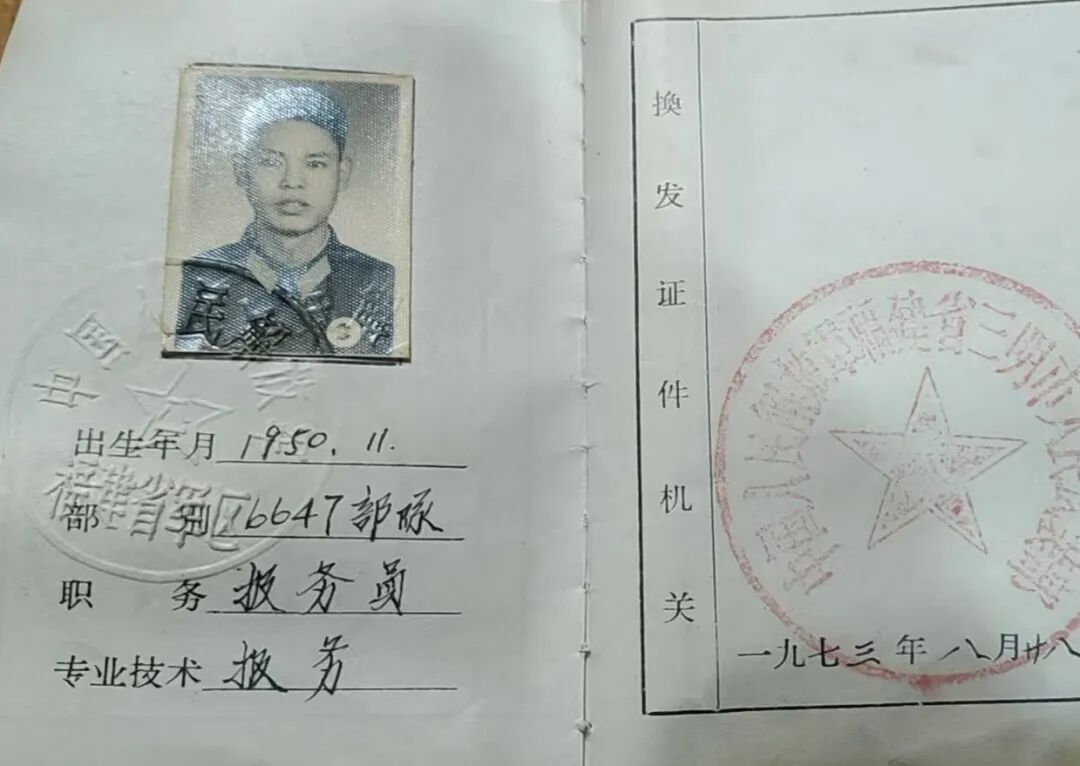 出生年月 1950.11.
部 别 6647部队
职 务 报务员
专业技术 报务
中国人民
福建省军区
换发证件机关
中国人民解放军福建省三明市人民武装部
一九七三年八月廿八